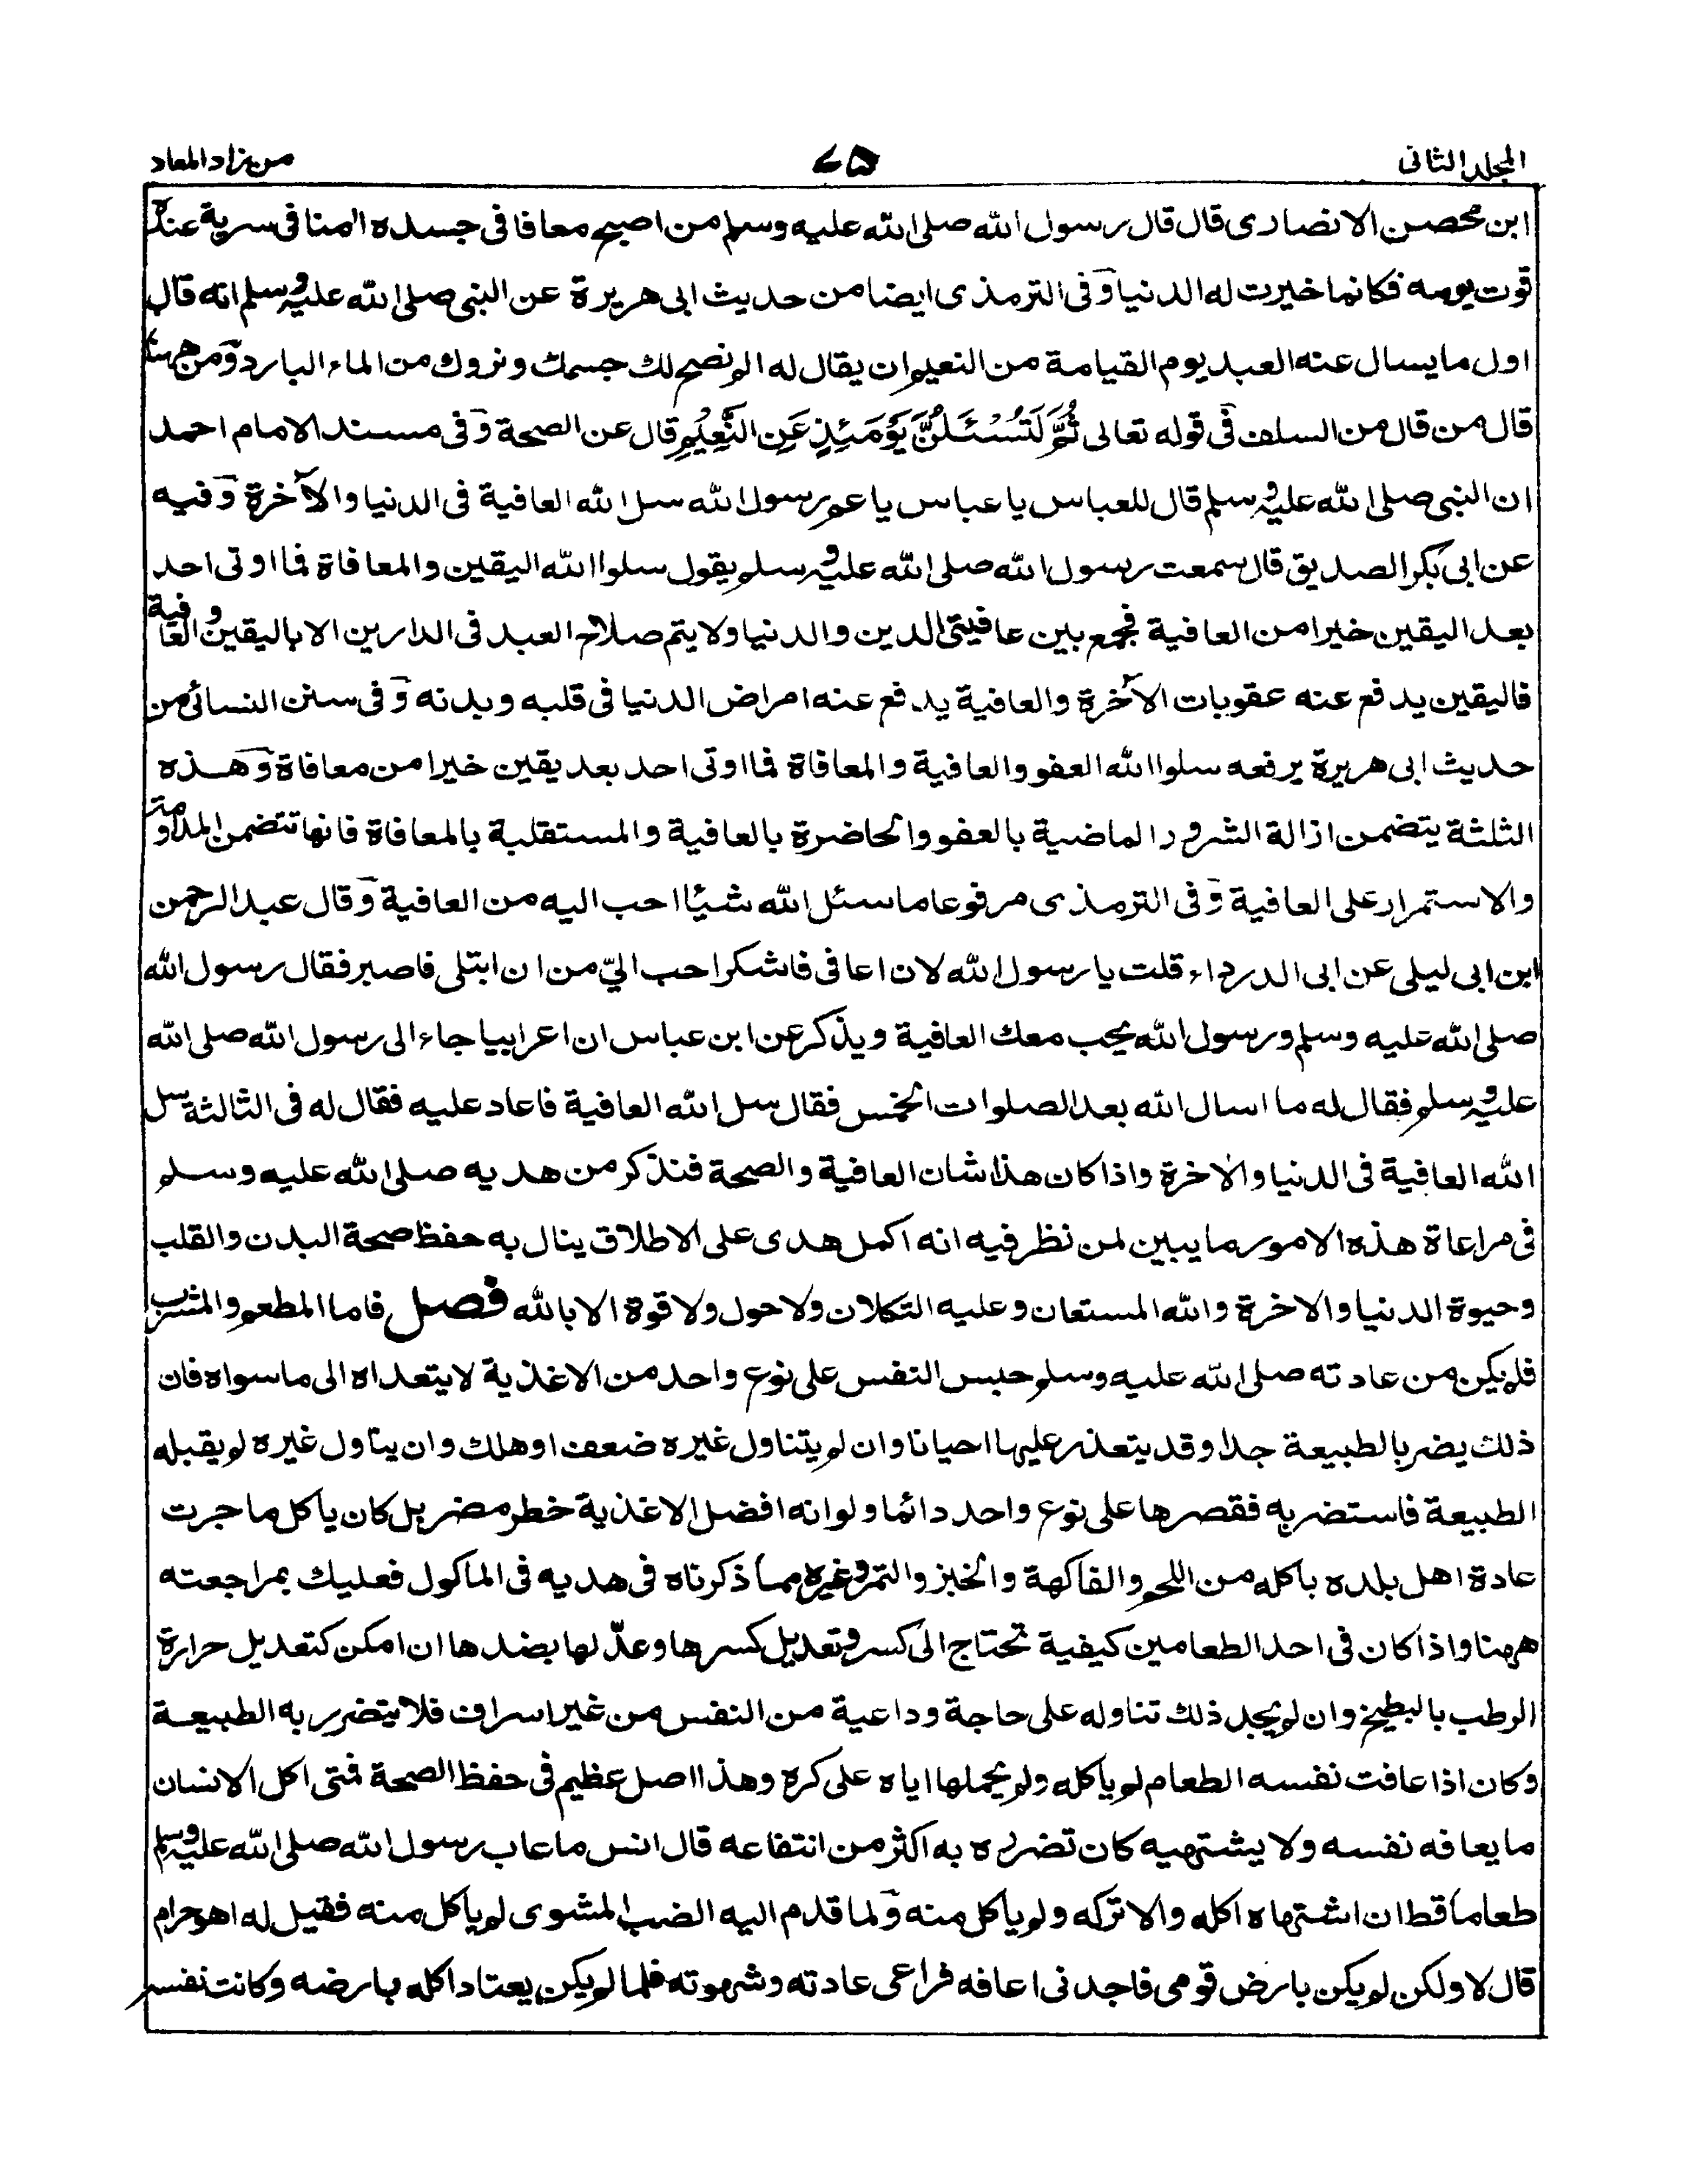 المجلد الثانی ۷۵ من زاد المعاد
ابن محصن الانصاری قال قال رسول الله صلی الله علیه وسلم من اصبح معافا فی جسده امنا فی سربة عنده
قوت یومه فکانما خیرت له الدنیا وفی الترمذی ایضا من حدیث ابی هریرة عن النبی صلی الله علیه وسلم انه قال
اول ما یسال عنه العبد یوم القیامة من النعیم ان یقال له الم نصح لك جسمك ونروك من الماء البارد ومن ههنا
قال من قال من السلف فی قوله تعالی ثُمَّ لَتُسْئَلُنَّ یَوْمَئِذٍ عَنِ النَّعِیْمِ قال عن الصحة وفی مسند الامام احمد
ان النبی صلی الله علیه وسلم قال للعباس یا عباس یا عم رسول الله سل الله العافیة فی الدنیا والآخرة وفیه
عن ابی بکر الصدیق قال سمعت رسول الله صلی الله علیه وسلم یقول سلوا الله الیقین والمعافاة فما اوتی احد
بعد الیقین خیرا من العافیة فجمع بین عافیتی الدین والدنیا ولا یتم صلاح العبد فی الدارین الا بالیقین والعافیة
فالیقین یدفع عنه عقوبات الآخرة والعافیة یدفع عنه امراض الدنیا فی قلبه وبدنه وفی سنن النسائی من
حدیث ابی هریرة یرفعه سلوا الله العفو والعافیة والمعافاة فما اوتی احد بعد یقین خیرا من معافاة وهذه
الثلثة یتضمن ازالة الشرور الماضیة بالعفو والحاضرة بالعافیة والمستقلبة بالمعافاة فانها تتضمن المداومة
والاستمرار علی العافیة وفی الترمذی مرفوعا ما سئل الله شیئا احب الیه من العافیة وقال عبد الرحمن
ابن ابی لیلی عن ابی الدرداء قلت یا رسول الله لان اعافی فاشکر احب الیّ من ان ابتلی فاصبر فقال رسول الله
صلی الله علیه وسلم ورسول الله یحب معك العافیة ویذکر عن ابن عباس ان اعرابیا جاء الی رسول الله صلی الله
علیه وسلم فقال له ما اسال الله بعد الصلوات الخمس فقال سل الله العافیة فاعاد علیه فقال له فی الثالثة سل
الله العافیة فی الدنیا والاخرة واذا کان هذا شان العافیة والصحة فنذکر من هدیه صلی الله علیه وسلم
فی مراعاة هذه الامور ما یبین لمن نظر فیه انه اکمل هدی علی الاطلاق ینال به حفظ صحة البدن والقلب
وحیوة الدنیا والاخرة والله المستعان وعلیه التکلان ولا حول ولا قوة الا بالله فصل فاما المطعم والمشرب
فلم یکن من عادته صلی الله علیه وسلم حبس النفس علی نوع واحد من الاغذیة لا یتعداه الی ما سواه فان
ذلك یضر بالطبیعة جدا وقد یتعذر علیها احیانا وان لم یتناول غیره ضعف او هلك وان یناول غیره لم یقبله
الطبیعة فاستضر به فقصرها علی نوع واحد دائما ولو انه افضل الاغذیة خطر مضر بل کان یاکل ما جرت
عادة اهل بلده باکله من اللحم والفاکهة والخبز والتمر وغیره مما ذکرناه فی هدیه فی الماکول فعلیك بمراجعته
ههنا واذا کان فی احد الطعامین کیفیة تحتاج الی کسر وتعدیل کسرها وعدّلها بضدها ان امکن کتعدیل حرارة
الرطب بالبطیخ وان لم یجد ذلك تناوله علی حاجة وداعیة من النفس من غیر اسراف فلا یتضرر به الطبیعة
وکان اذا عافت نفسه الطعام لم یاکله ولم یحملها ایاه علی کره وهذا اصل عظیم فی حفظ الصحة فمتی اکل الانسان
ما یعافه نفسه ولا یشتهیه کان تضرره به اکثر من انتفاعه قال انس ما عاب رسول الله صلی الله علیه وسلم
طعاما قط ان اشتهاه اکله والا ترکه ولم یاکل منه ولما قدم الیه الضب المشوی لم یاکل منه فقیل له اهو حرام
قال لا ولکن لم یکن بارض قومی فاجدنی اعافه فراعی عادته وشهوته فلما لم یکن یعتاد اکله بارضه وکانت نفسه